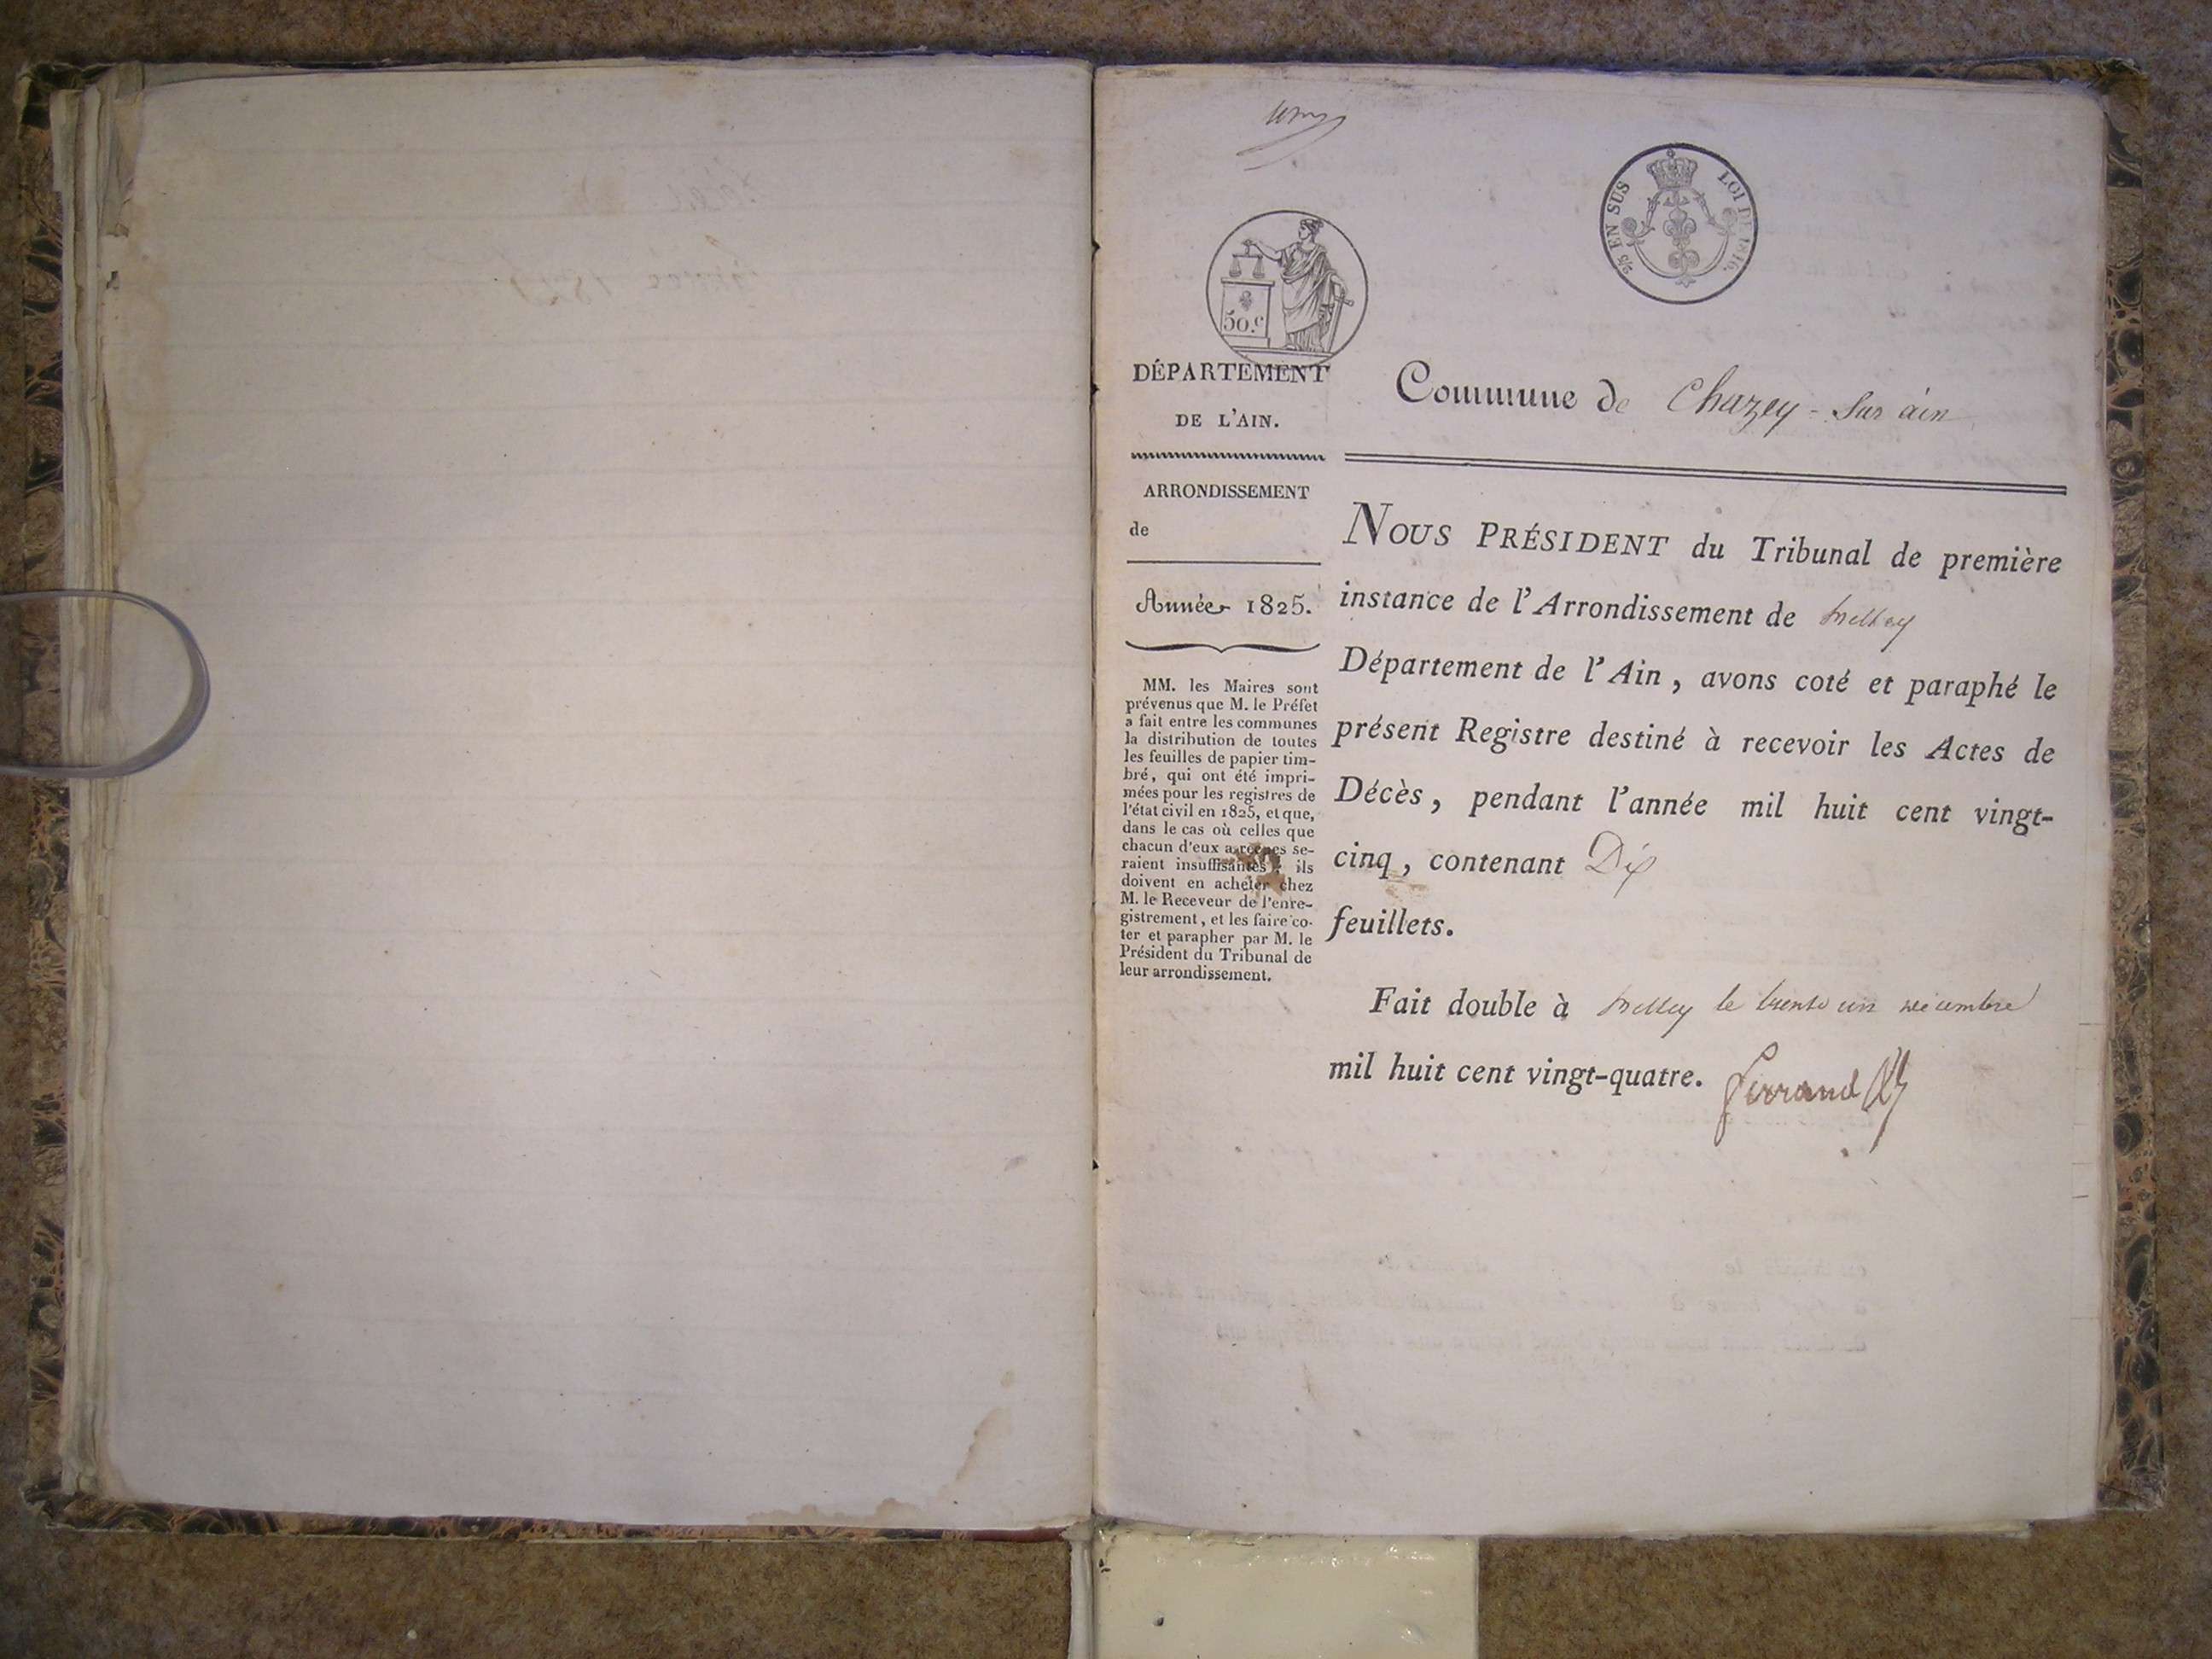 2/5 EN SUS LOI DE 1816.
50.c
DÉPARTEMENT
DE L'AIN.
Commune de Chazey - sur ain
ARRONDISSEMENT
de
Année 1825.
MM. les Maires sont
prévenus que M. le Préfet
a fait entre les communes
la distribution de toutes
les feuilles de papier tim-
bré, qui ont été impri-
mées pour les registres de
l'état civil en 1825, et que,
dans le cas où celles que
chacun d'eux a reçues se-
raient insuffisantes, ils
doivent en acheter chez
M. le Receveur de l'enre-
gistrement, et les faire co-
ter et parapher par M. le
Président du Tribunal de
leur arrondissement.
NOUS PRÉSIDENT du Tribunal de première
instance de l'Arrondissement de
Département de l'Ain, avons coté et paraphé le
présent Registre destiné à recevoir les Actes de
Décès, pendant l'année mil huit cent vingt-
cinq, contenant Dix
feuillets.
Fait double à le trente un décembre
mil huit cent vingt-quatre. Ferrand